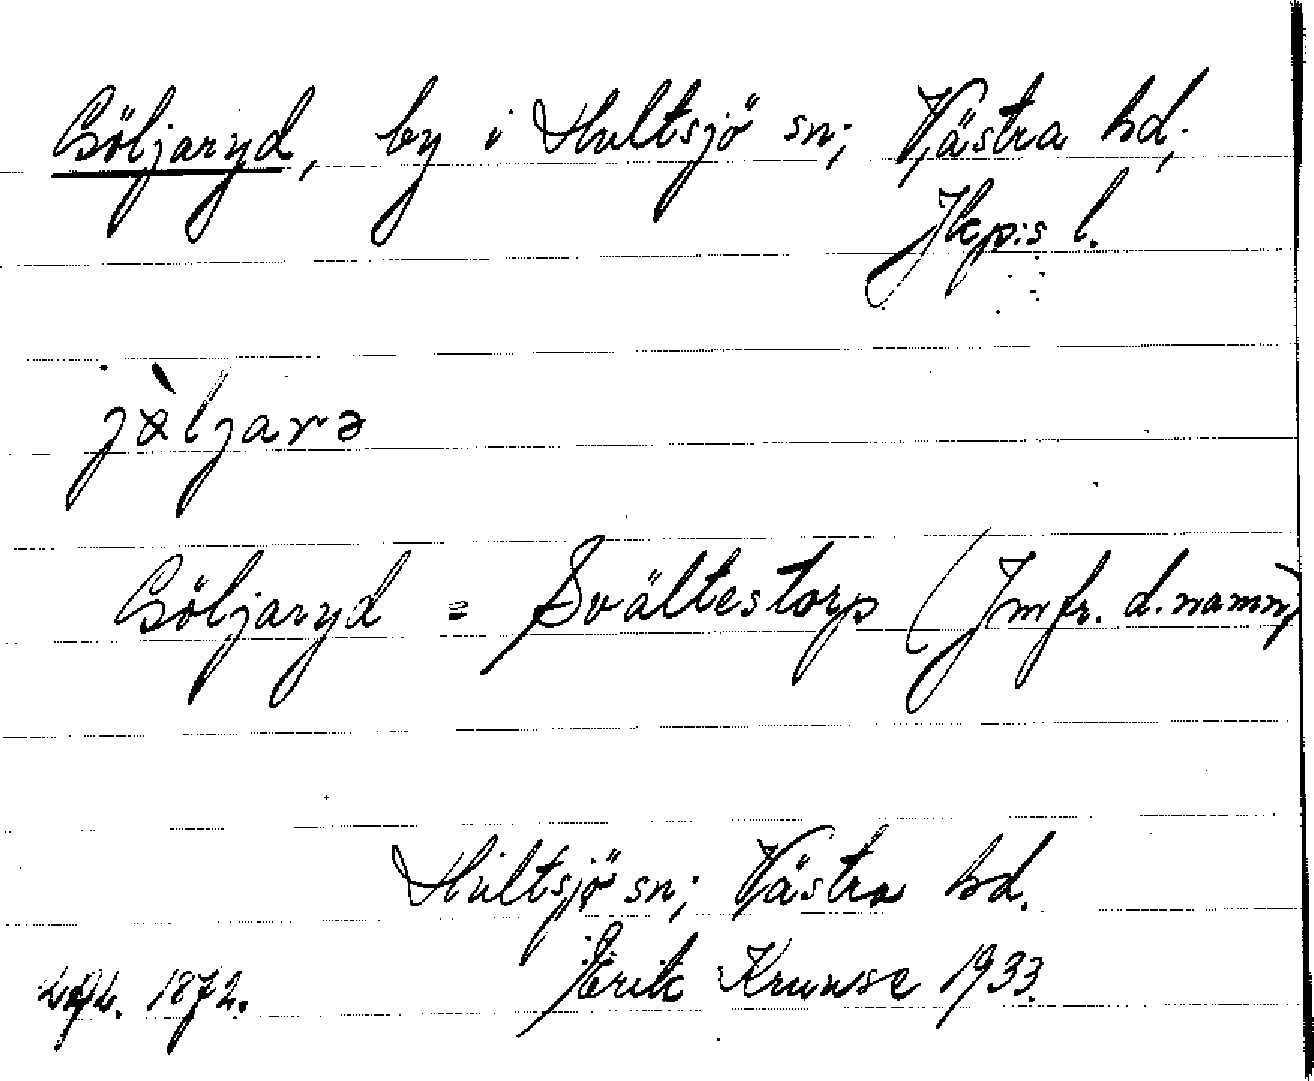 Göljaryd, by i Hultsjö sn; Västra hd;
Jkp:s l.
jàljarə
Göljaryd = Svältestorp (Jmfr. d. namn)
Hultsjö sn; Västra hd.
Erik Kruuse 1933.
1872.